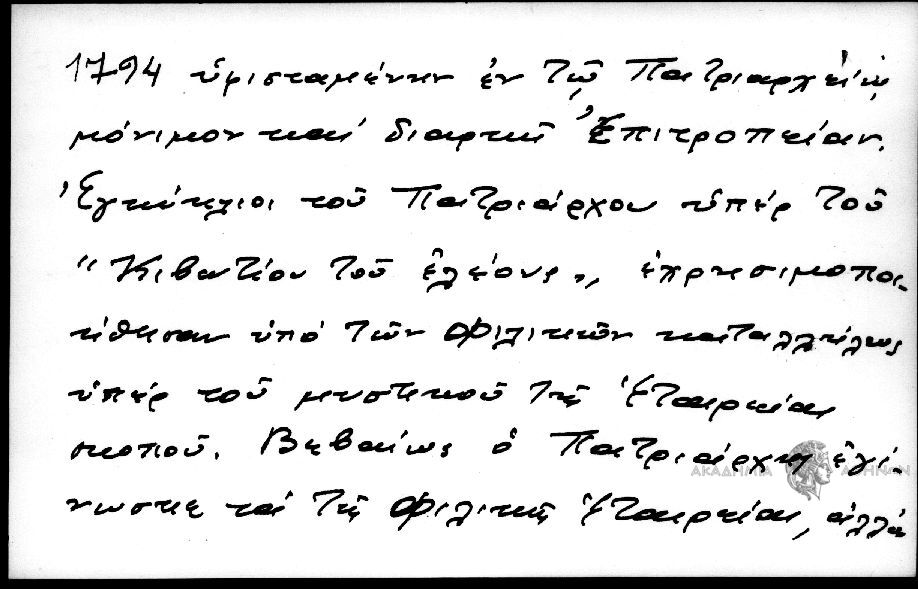 1794 ὑφισταμένην ἐν τῷ Πατριαρχείῳ
μόνιμον καί διαρκῆ Ἐπιτροπείαν.
Ἐγκύκλιοι τοῦ Πατριάρχου ὑπέρ τοῦ
"Κιβωτίου τοῦ ἐλέους", ἐχρησιμοποι-
ήθησαν ὑπό τῶν Φιλικῶν καταλλήλως
ὑπέρ τοῦ μυστικοῦ τῆς Ἑταιρείας
σκοποῦ. Βεβαίως ὁ Πατριάρχης ἐγί-
νωσκε τά τῆς Φιλικῆς Ἑταιρείας, ἀλλά
ΑΚΑΔΗΜΙΑ ΑΘΗΝΩΝ